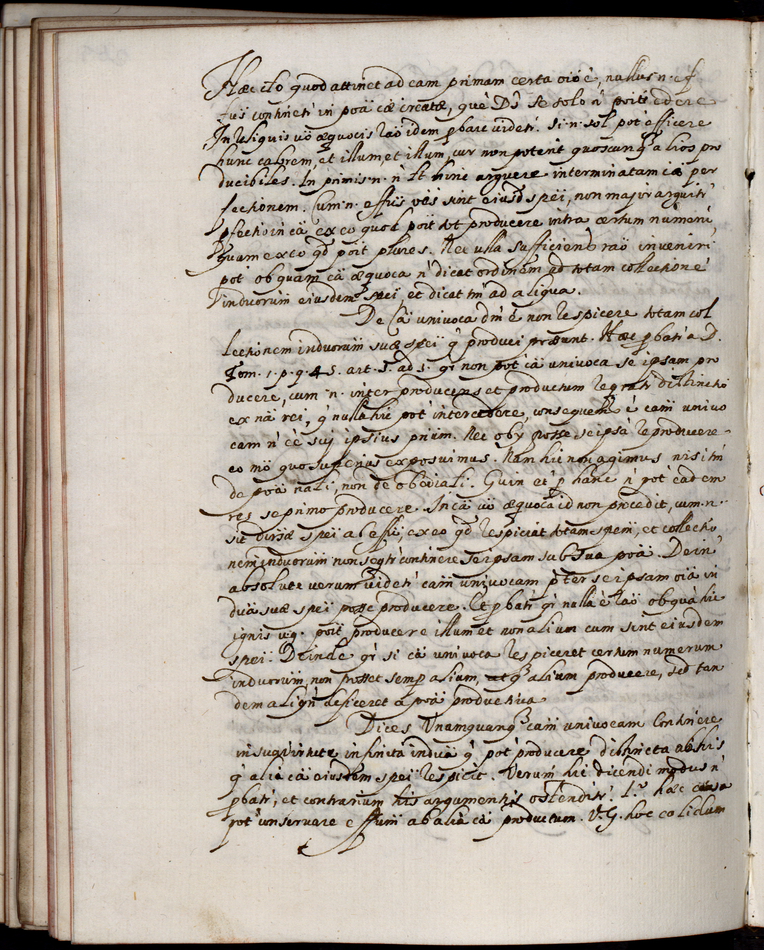 Hæc ito quod attinet ad eam primam certa oiō ē, nullus n. ef
fus contineti in poā cæ creatæ, quē Ds se solo ñ poss edere
In reliquis vō æquocis raō idem pbare videti. Si n. sol pot efficere
hunc calorem, et illum, et illum, cur non poterit quoscunq alios pro
ducibiles. In primis n. ñ lt hinc arguere interminatam cæ per
fectionem. Cum n. effus oēs sint eiusd spēi, non major arguiti
pfectio in cā ex eo quod possit tot producere intra certum numerū
quam ex eo qd possit plures. Nec ulla sufficiens raō inveniri
pot ob quam cā æquoca ñ dicat ordinem ad totam collectionē
induorum eiusdem spēi, et dicat tm ad aliqua.
De cā univoca dm ē non respicere totam col
lectionem induorum suæ spēi q produci possunt. Hæc pbati a D.
Tom. 1. p. q. 45. art. 5. ad 1. qi non pot cā univoca se ipsam pro
ducere, cum n. inter producens et productum reqrati distinctio
ex nā rei, q nulla hic pot intercedere, consequens ē cam univo
cam ñ cē sui ipsius prim. Nec obx posse se ipsā reproducere
eo mō quo superius exposuimus. Nam hic non agimus nisi tm
de poā nali, non de obedialí. Quin et p hanc ñ pot eadem
res se primo producere. In cā vō æquoca id non procedit, cum n.
sit diversæ spēi ab effu, ex eo qd respiciat totam spem, et collectio
nem induorum non seqti continere se ipsam sub sua poā. Dein
absolute verum videti cam univocam pter se ipsam oia in
dua suæ spēi posse producere. Et pbati qi nulla ē raō ob quā hic
ignis v.g. possit producere illum et non alium cum sint eiusdem
spēi. Deinde qi si cā univoca respiceret certum numerum
induorum, non posset semp alium, atq alium producere, sed tan
dem aliqn deficeret a poā productiva.
Dices Unamquamq cam univocam continere
in sua virtute infinita indua q pot producere distincta ab his
q alia cā eiusdem spēi respicit. Verum hic dicendi modus ñ
pbati, et contrarium his argumentis ostenditi. 1.º hæc causa
pot conservare effum ab alia cā productum. V.G. hoc calidum